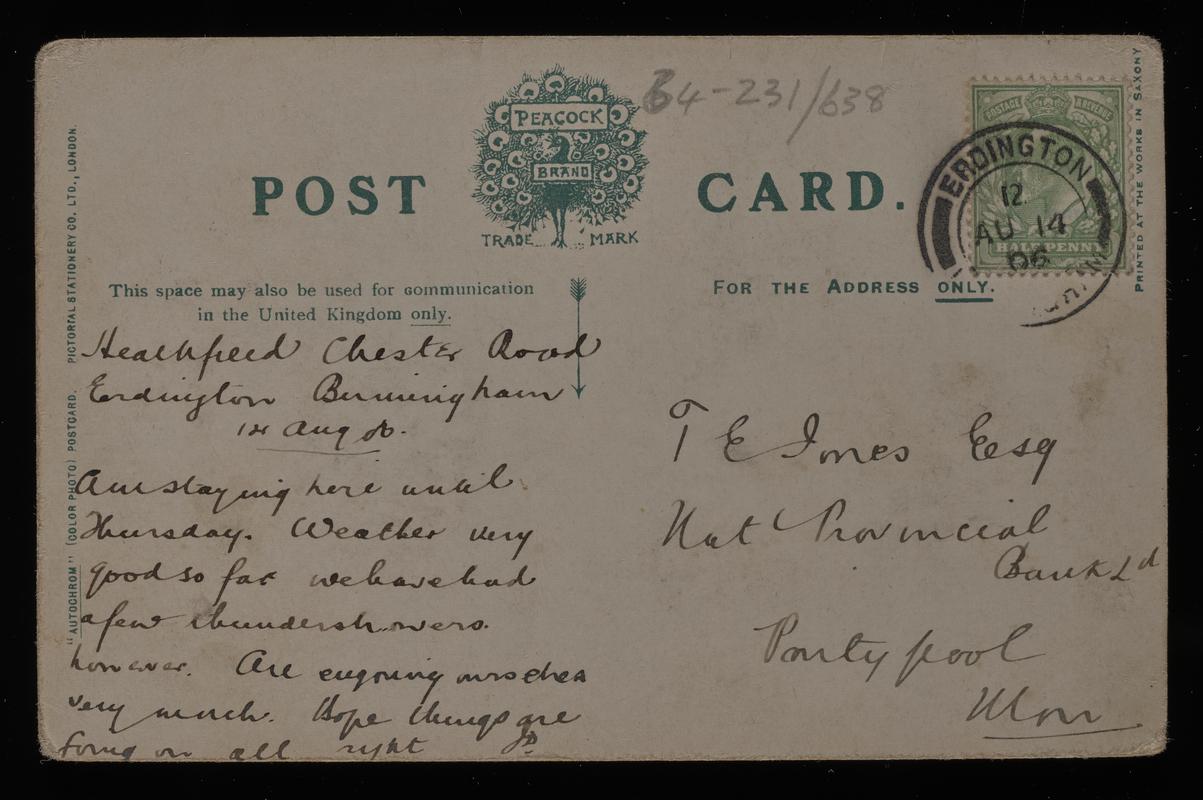 64-231/638
PEACOCK
BRAND
TRADE MARK
POST CARD.
ERDINGTON
12.
AU 14
06
POSTAGE & REVENUE
HALFPENNY
PRINTED AT THE WORKS IN SAXONY
"AUTOCHROM" (COLOR PHOTO) POSTCARD. PICTORIAL STATIONERY CO, LTD., LONDON.
This space may also be used for communication
in the United Kingdom only.
FOR THE ADDRESS ONLY.
Heathfield Chester Road
Erdington Birmingham
Aug 06.
Am staying here until
Thursday. Weather very
good so far we have had
a few thundershowers.
however. Are enjoying ourselves
very much. Hope things are
going on all right
T E Jones Esq
Nat Provincial
Bank Ld
Pontypool
Mon